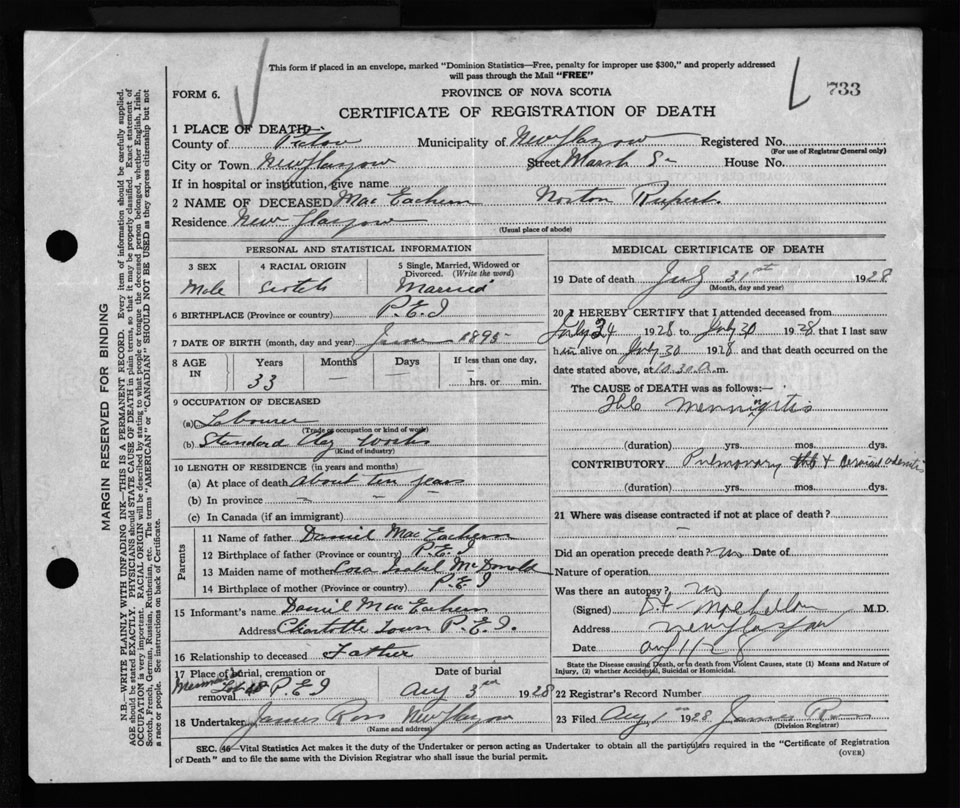 This form if placed in an envelope, marked "Dominion Statistics—Free, penalty for improper use $300," and properly addressed
will pass through the Mail "FREE"
FORM 6.
PROVINCE OF NOVA SCOTIA
733
CERTIFICATE OF REGISTRATION OF DEATH
1 PLACE OF DEATH—
County of Pictou Municipality of New Glasgow Registered No.
(For use of Registrar General only)
City or Town New Glasgow Street Marsh St House No.
If in hospital or institution, give name
2 NAME OF DECEASED Mac Eachern Norton Rupert.
Residence New Glasgow
(Usual place of abode)
PERSONAL AND STATISTICAL INFORMATION
3 SEX 4 RACIAL ORIGIN 5 Single, Married, Widowed or Divorced. (Write the word)
Male Scotch Married
6 BIRTHPLACE (Province or country) P.E.I
7 DATE OF BIRTH (month, day and year) June 1895
8 AGE IN Years Months Days If less than one day,
33 — hrs. or min.
9 OCCUPATION OF DECEASED
(a) Labourer
(Trade or occupation or kind of work)
(b) Standard Clay Works
(Kind of industry)
10 LENGTH OF RESIDENCE (in years and months)
(a) At place of death about ten years
(b) In province
(c) In Canada (if an immigrant)
Parents
11 Name of father Daniel Mac Eachern
12 Birthplace of father (Province or country) P.E.I
13 Maiden name of mother Cora Isabel McDonald
14 Birthplace of mother (Province or country) P.E.I
15 Informant's name Daniel Mac Eachern
Address Charlotte Town P.E.I.
16 Relationship to deceased Father
17 Place of burial, cremation or removal P.E.I
Date of burial
Aug 3rd 1928
18 Undertaker James Ross New Glasgow
(Name and address)
MEDICAL CERTIFICATE OF DEATH
19 Date of death July 31st 1928
(Month, day and year)
20 I HEREBY CERTIFY that I attended deceased from
July 24 1928 to July 30 1928 that I last saw
him alive on July 30 1928 and that death occurred on the
date stated above, at 10.30 a.m.
The CAUSE of DEATH was as follows:—
Tbc Menningitis
(duration) yrs. mos. dys.
CONTRIBUTORY Pulmonary tb + cervical adenitis
(duration) yrs. mos. dys.
21 Where was disease contracted if not at place of death?
—
Did an operation precede death? no Date of
Nature of operation
Was there an autopsy? no
(Signed) M.D.
Address New Glasgow
Date
State the Disease causing Death, or in death from Violent Causes, state (1) Means and Nature of
Injury, (2) whether Accidental, Suicidal or Homicidal.
22 Registrar's Record Number
23 Filed Aug 1st 1928 James Ross
(Division Registrar)
SEC. 46—Vital Statistics Act makes it the duty of the Undertaker or person acting as Undertaker to obtain all the particulars required in the "Certificate of Registration
of Death" and to file the same with the Division Registrar who shall issue the burial permit.
(OVER)
MARGIN RESERVED FOR BINDING
N.B.—WRITE PLAINLY WITH UNFADING INK—THIS IS A PERMANENT RECORD. Every item of information should be carefully supplied.
AGE should be stated EXACTLY. PHYSICIANS should STATE CAUSE OF DEATH in plain terms, so that it may be properly classified. Exact statement of
OCCUPATION is very important. RACIAL ORIGIN will be described by stating to what people or tongue the deceased person belonged, whether English, Irish,
Scotch, French, German, Russian, Ruthenian, etc. The terms "AMERICAN" or "CANADIAN" SHOULD NOT BE USED as they express citizenship but not
a race or people. See instructions on back of Certificate.